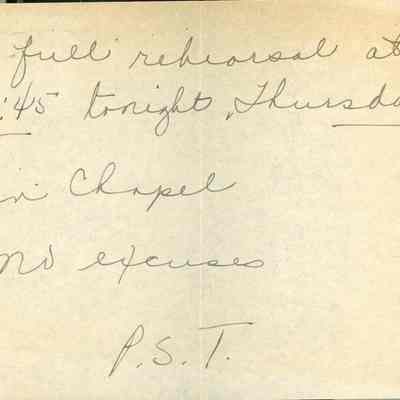 full rehearsal at
:45 tonight, Thursda
in Chapel
No excuses
P.S.T.